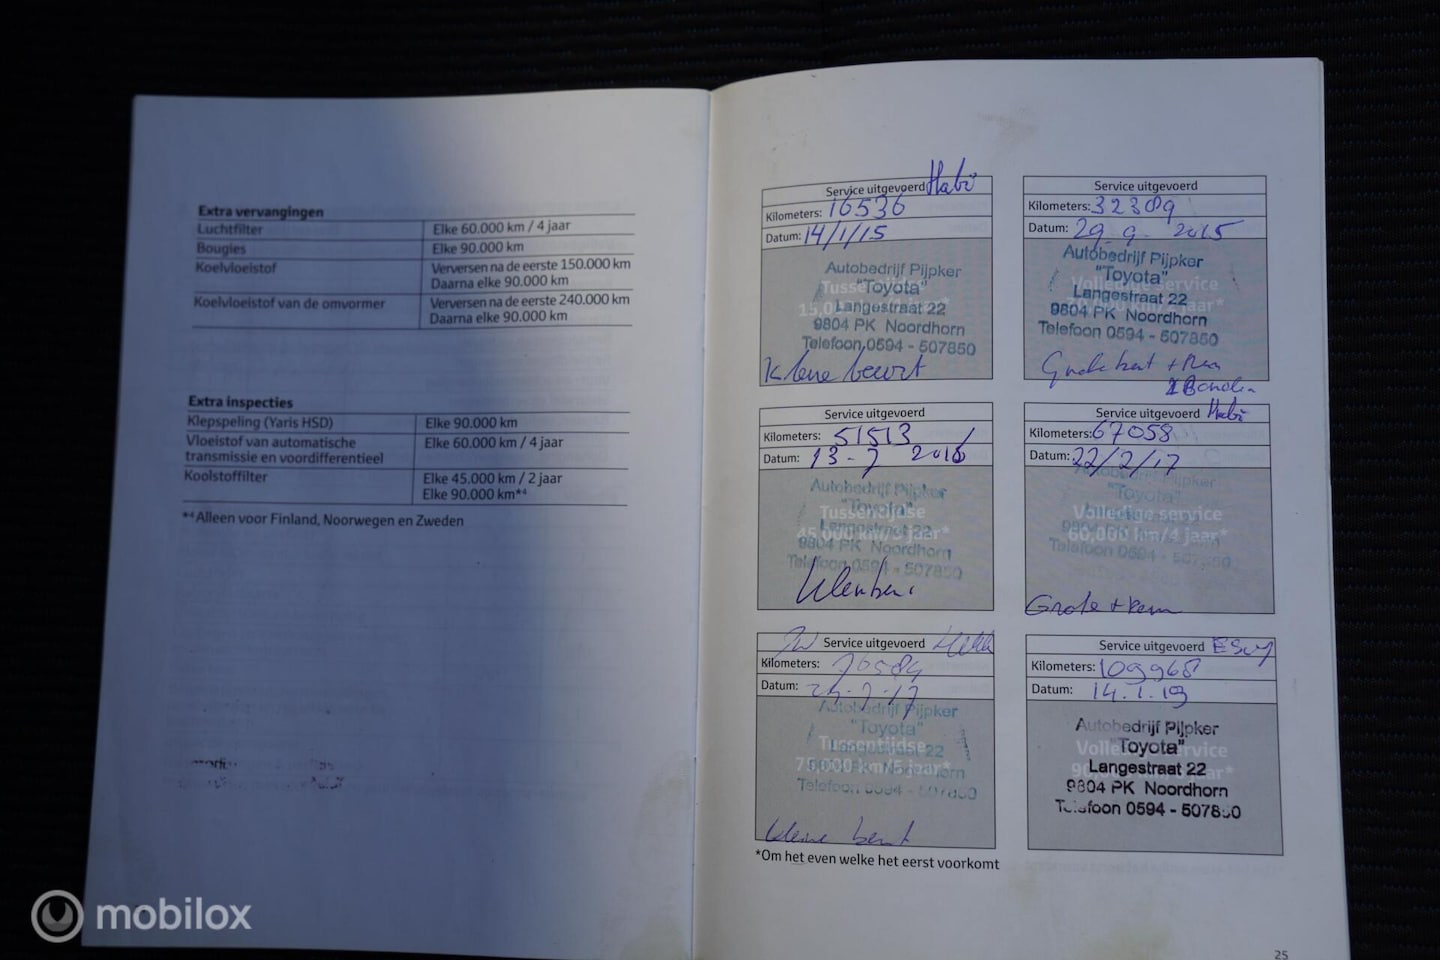 Extra vervangingen
Luchtfilter Elke 60.000 km / 4 jaar
Bougies Elke 90.000 km
Koelvloeistof Verversen na de eerste 150.000 km
Daarna elke 90.000 km
Koelvloeistof van de omvormer Verversen na de eerste 240.000 km
Daarna elke 90.000 km
Extra inspecties
Klepspeling (Yaris HSD) Elke 90.000 km
Vloeistof van automatische
transmissie en voordifferentieel Elke 60.000 km / 4 jaar
Koolstoffilter Elke 45.000 km / 2 jaar
Elke 90.000 km*⁴
*⁴Alleen voor Finland, Noorwegen en Zweden
Service uitgevoerd
Kilometers: 16536
Datum: 14/1/15
Autobedrijf Pijpker
"Toyota"
Langestraat 22
9804 PK Noordhorn
Telefoon 0594 - 507850
Kleine beurt
Service uitgevoerd
Kilometers: 32389
Datum: 29-9-2015
Autobedrijf Pijpker
"Toyota"
Volledige service
Langestraat 22
9804 PK Noordhorn
Telefoon 0594 - 507850
Service uitgevoerd
Kilometers: 51513
Datum: 13-7 2016
Autobedrijf Pijpker
"Toyota"
Tussentijdse
Langestraat 22
45.000 km/3 jaar*
9804 PK Noordhorn
Telefoon 0594 - 507850
Service uitgevoerd
Kilometers: 67058
Datum: 22/2/17
"Toyota"
Volledige service
60,000 km/4 jaar*
Telefoon 0594 - 507850
Grote + Rem
Service uitgevoerd
Kilometers: 76584
Datum:
Autobedrijf Pijpker
"Toyota"
Tussentijdse
75,000 km/5 jaar*
Telefoon 0594 - 507850
kleine beurt
Service uitgevoerd
Kilometers: 109968
Datum: 14.1.19
Autobedrijf Pijpker
"Toyota"
Volledige service
Langestraat 22
9804 PK Noordhorn
Telefoon 0594 - 507850
*Om het even welke het eerst voorkomt
25
mobilox